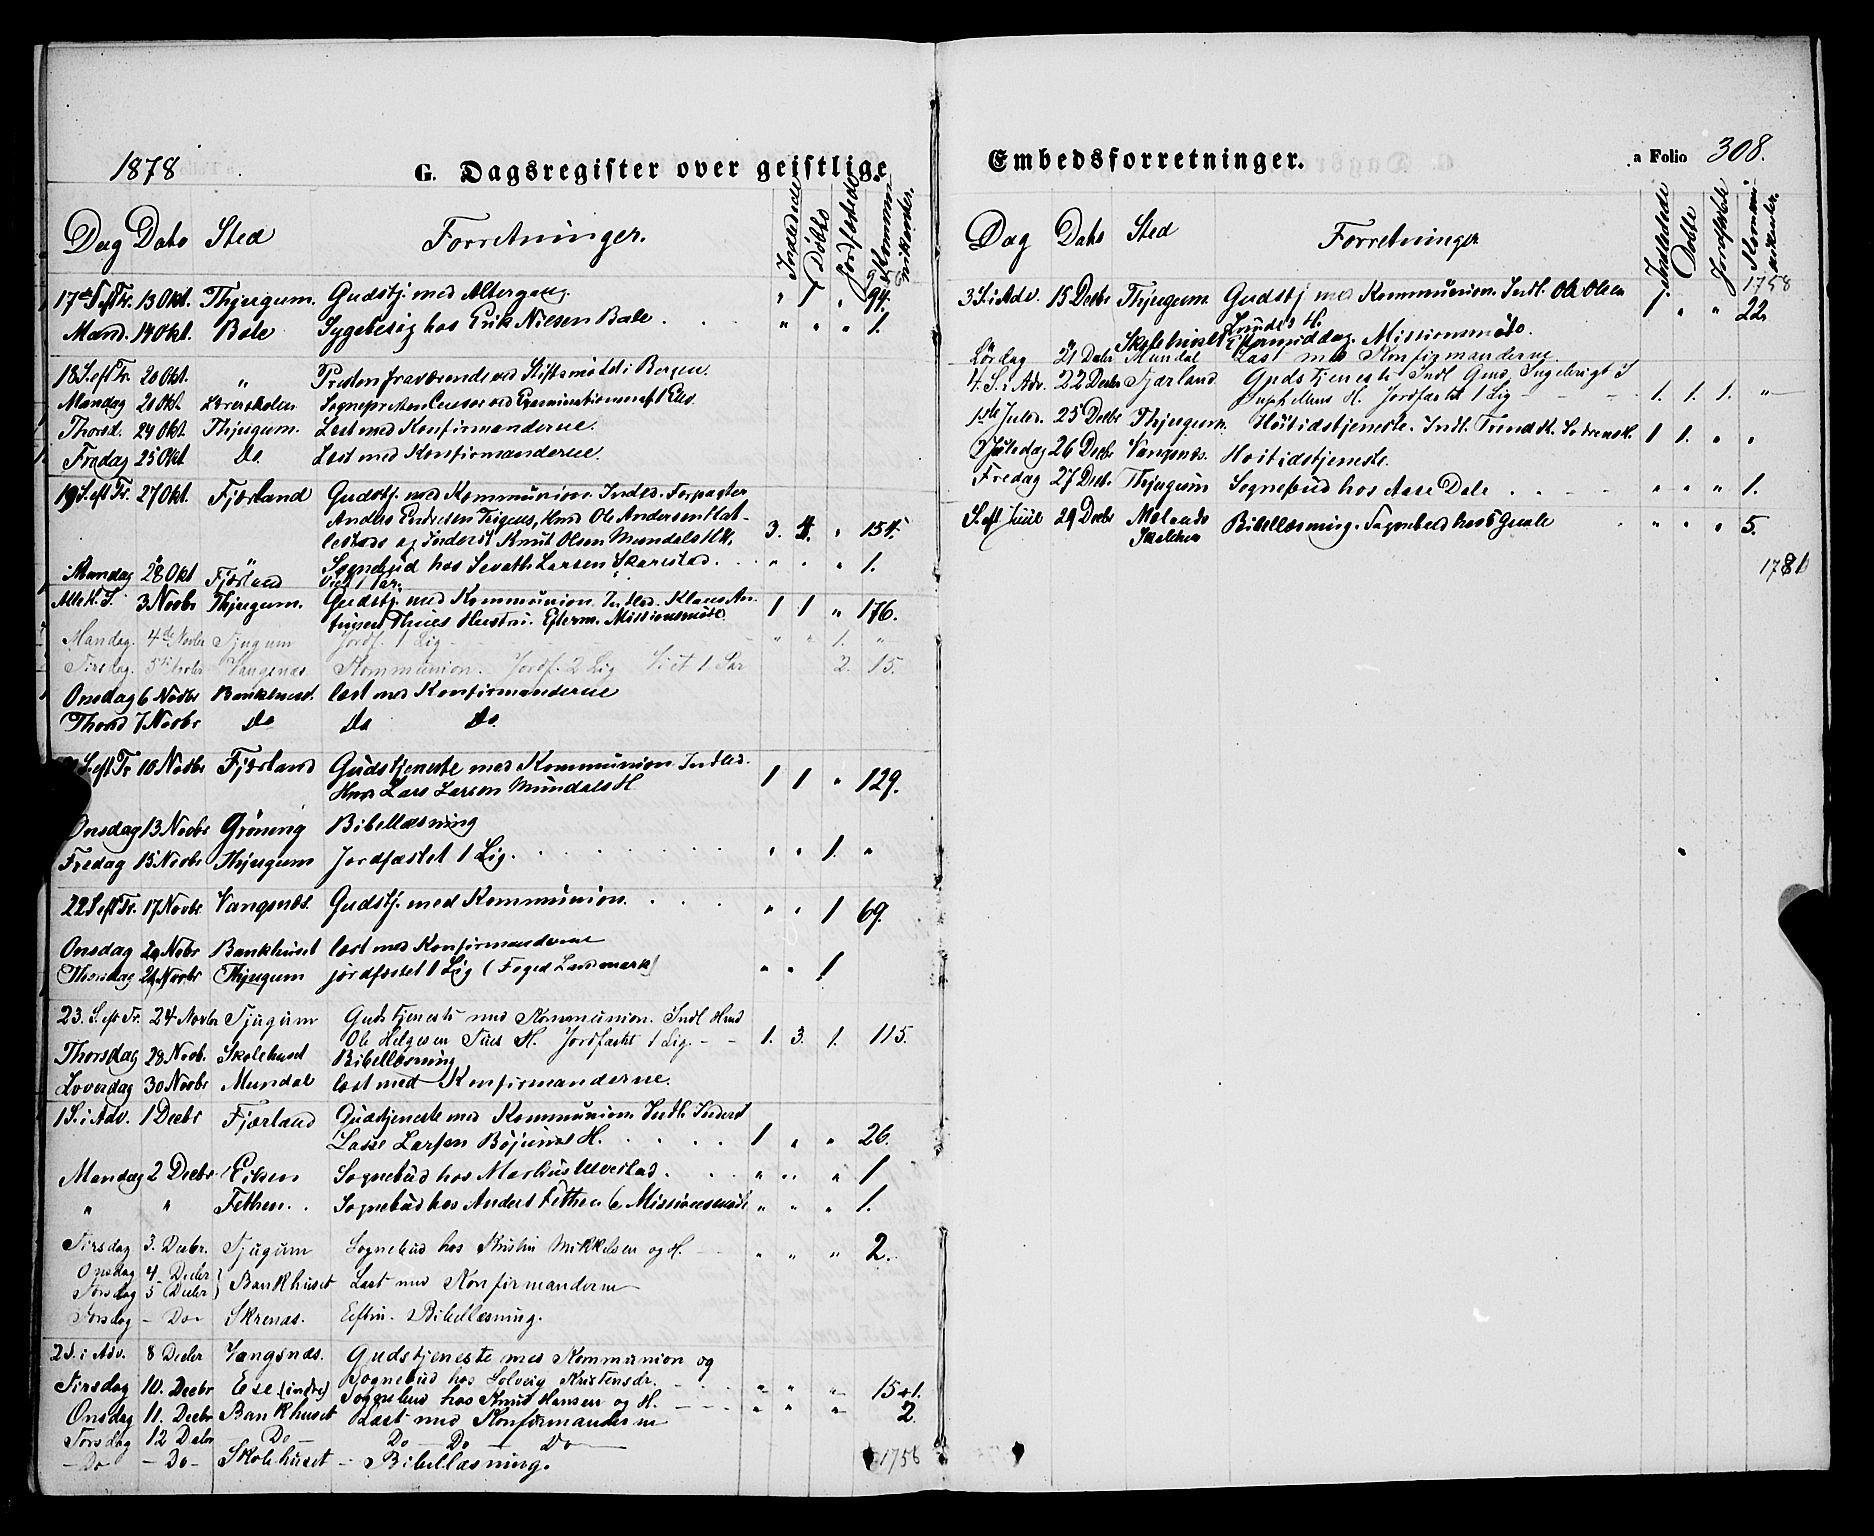 1878
G. Dagsregister over geistlige
Dag Dato Sted Forretninger. Indledede Døbte Jordfæstede Kommunikanter.
17de S. eft Tr. 13 Okt. Thjugum. Gudstj. med Altergang. " 1 " 94.
Mand. 14 Okt. Bale Sygebesøg hos Erik Nielsen Bale . . . " " " 1.
18 S. eft Tr. 20 Okt. " Presten fraværende ved Stiftsmødet i Bergen.
Mandag 20 Okt. Lærerskolen Sognepresten Censor ved Examinationen af 1 Elev.
Thorsd. 24 Okt. Thjugum. Læst med Konfirmanderne.
Fredag 25 Okt Do. Læst med Konfirmanderne.
19 S. eft Tr. 27 Okt. Fjærland Gudstj. med Kommunion. Indled. Forpagter
Anders Endresen Hustru, Knud Ole Andersen Flat-
lestads og Inderst Knut Olsen Mundals Hk. 3. 4. " 154.
Mandag 28 Okt Fjærland Sognebud hos Sevath Larsen Skarestad. . . " " " 1.
Viet 1 Par.
Alle H. S. 3 Novbr Thjugum. Gudstj. med Kommunion. Indled. Klaus An-
Thues Hustru. Efterm. Missionsmøde. 1 1 " 176.
Mandag. 4de Novbr Tjugum Jordf. 1 Lig - " " 1. "
Tirsdag. 5te Novbr Vangsnæs Kommunion. Jordf. 2 Lig Viet 1 Par 2. 15.
Onsdag 6 Novbr Bankhuset. læst med Konfirmanderne
Thorsd 7 Novbr Do Do Do.
S. eft Tr 10 Novbr Fjærland Gudstjeneste med Kommunion Indled.
Hmd Lars Larsen Mundals H. 1 1 " 129.
Onsdag 13 Novbr Grøning Bibellæsning
Fredag 15 Novbr Thjugum Jordfæstet 1 Lig. . . . " " 1. "
22 S eft Tr. 17 Novbr Vangsnæs. Gudstj. med Kommunion. . . . " " 1 69.
Onsdag 20 Novbr Bankhuset læst med Konfirmanderne
Thorsdag 21 Novbr Thjugum jordfæstet 1 Lig (Foged Landmark) " " 1
23. S. eft Tr. 24 Novbr Tjugum Gudstjeneste med Kommunion. Indl Hmd
Ole Helgesen Tues H. Jordfæstet 1 Lig. - - 1. 3. 1. 115.
Thorsdag 28 Novb. Skolehuset Bibellæsning
Løverdag 30 Novbr Mundal læst med Konfirmanderne.
1 S. i Adv. 1 Decbr Fjærland Gudstjeneste med Kommunion. Indl. Inderst
Lasse Larsen Bøjums H. . . . . 1 " " 26.
Mandag 2 Decbr Eiken Sognebud hos Markus Ulvestad. . . " " " 1
" " Fethen. . Sognebud hos Anders Fethen & Missionsmøde " " " 1.
Tirsdag 3. Decbr. Tjugum Sognebud hos Mikkelsen og H. " " " 2.
Onsdag 4 Decbr
Torsdag 5 Decbr } Bankhuset Læst med Konfirmanderne
Torsdag - Do - Skrenas. Eftm. Bibellæsning.
2 S. i Adv. 8 Decbr Vangsnæs. Gudstjeneste med Kommunion og
Sognebud hos Solveig Kristensdr. - " " " 15+1.
Tirsdag 10. Decbr Ese (indre) Sognebud hos Knud Hansen og H. - " " " 2.
Onsdag 11. Decbr Bankhuset Læst med Konfirmanderne
Torsdag 12 Decbr - Do - Do - Do - Do
- Do - Do - Skolehuset - Bibellæsning.
1758
Embedsforretninger.
a Folio 308.
Dag Dato Sted Forretninger Indledede Døbte Jordfæstede Kommunikanter
1758
3 S. i Adv. 15 Decbr Thjugum Gudstj med Kommunion. Indl. Ole Olsen
H. 1 " " 22
Skolehuset Eftermiddag. Missionsmøde.
Lørdag 21 Decbr Mundal Læst med Konfirmanderne.
4. S. i Adv. 22 Decbr Fjærland Gudstjeneste Indl Gmd. Ingebrigt
H. Jordfæstet 1 Lig - - - 1. 1. 1. "
1ste Juled. 25 Decbr Thjugum. Høitidstjeneste. Indl. 1 1. " "
2 Juledag 26 Decbr Vangsnæs. Høitidstjeneste.
Fredag 27 Decbr. Thjugum Sognebud hos Aase Dale . . . " " " 1.
S. eft Juul 29 Decbr Mølands Skolehus Bibellæsning. Sognebud hos 5 " " " 5.
1786